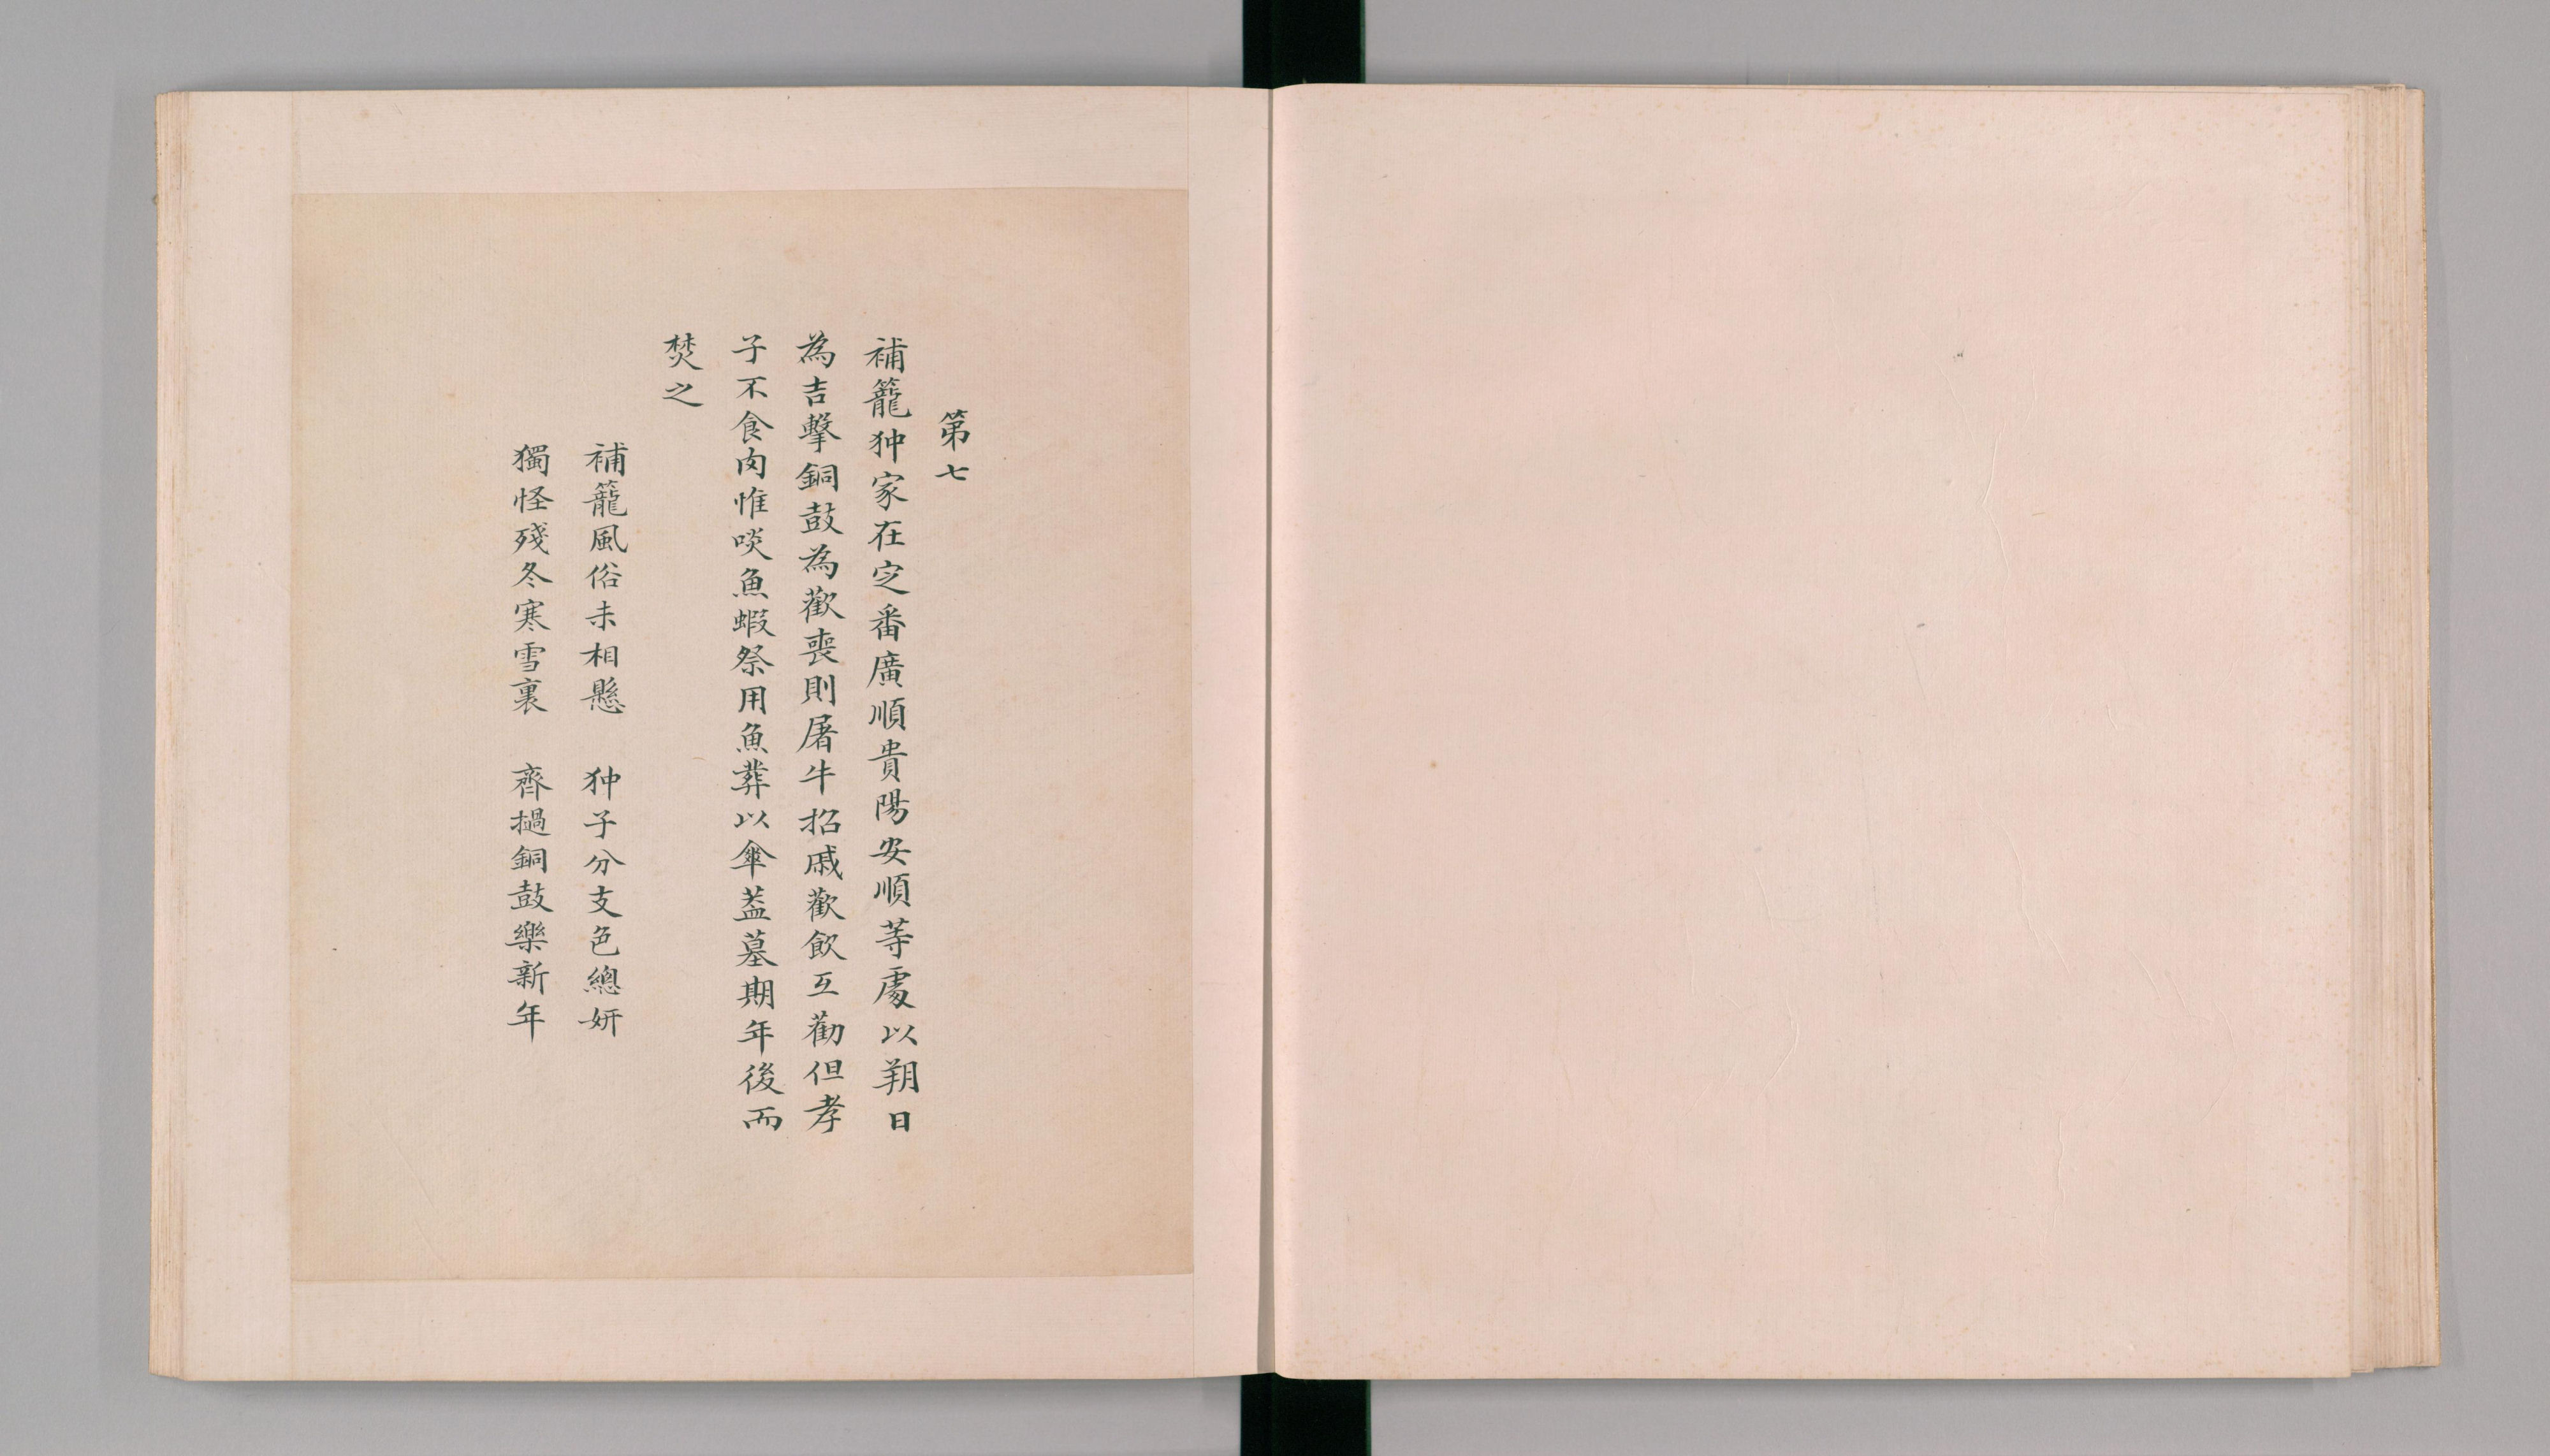 第七
補籠狆家在定番廣順貴陽安順等處以朔日
為吉擊銅鼓為歡喪則屠牛招戚歡飲互勸但孝
子不食肉惟啖魚蝦祭用魚葬以傘葢墓期年後而
焚之
補籠風俗未相懸　狆子分支色總妍
獨怪殘冬寒雪裏　齊撾銅鼓樂新年